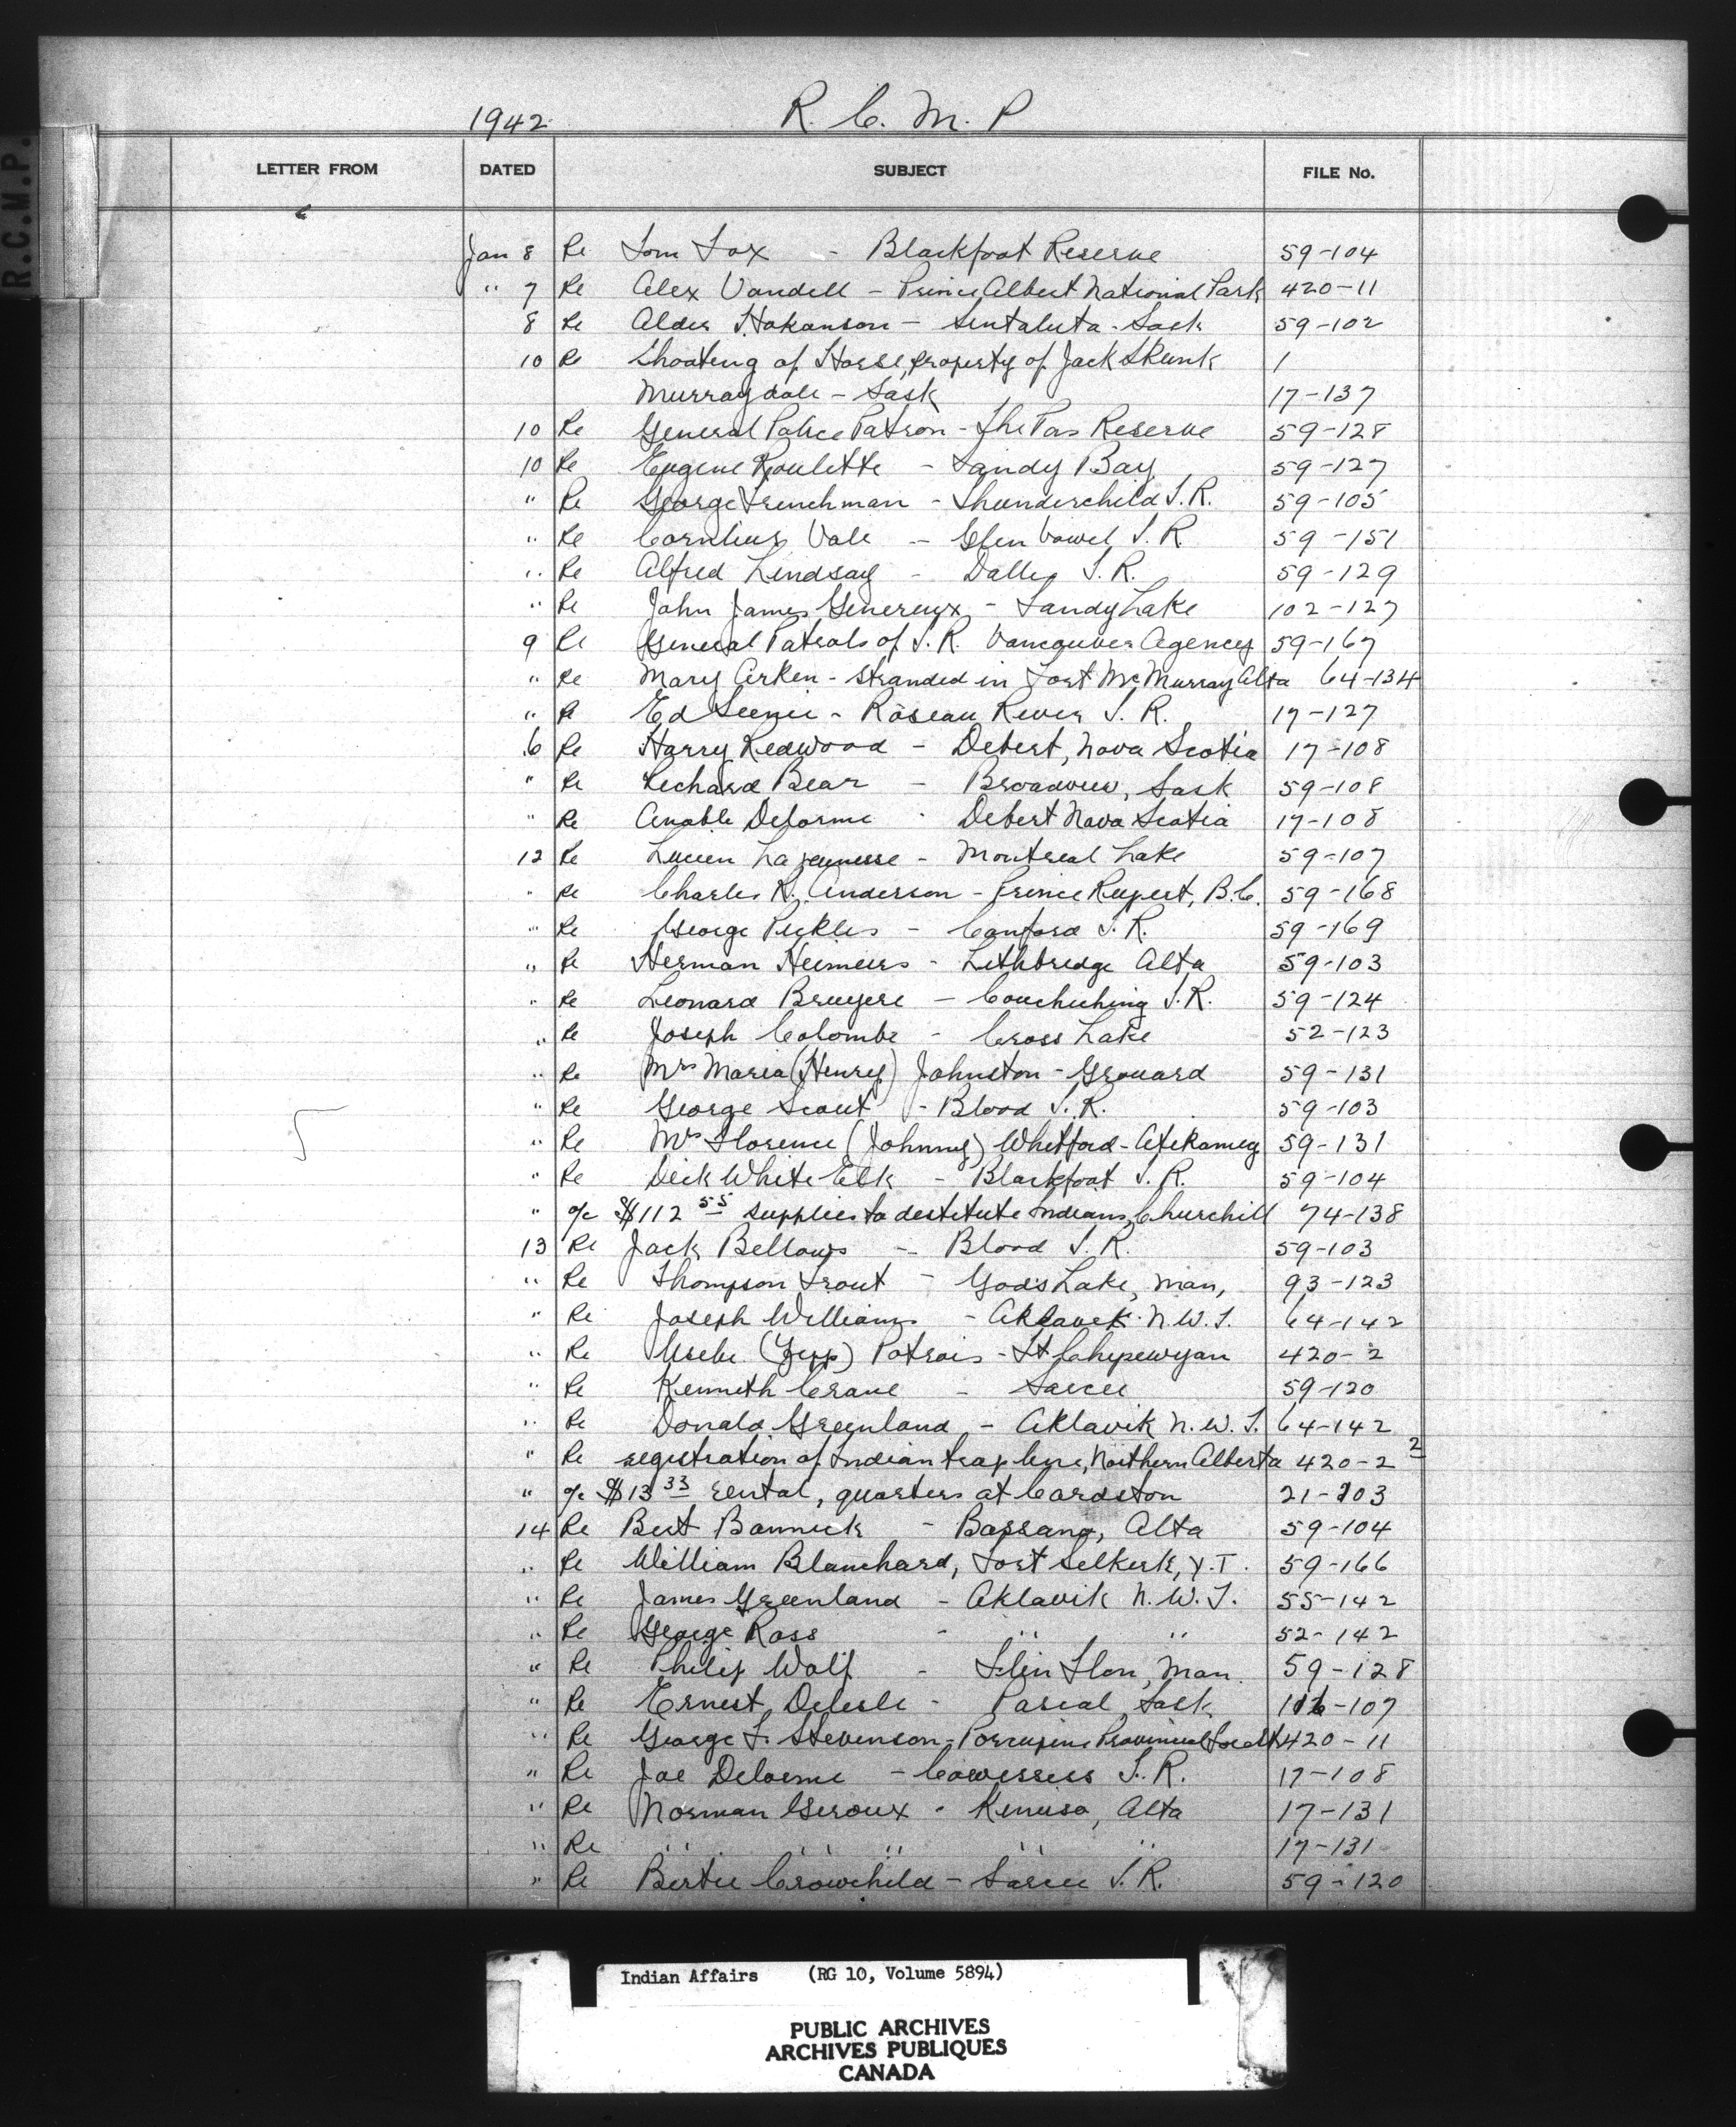 1942 R. C. M. P
R.C.M.P.
LETTER FROM DATED SUBJECT FILE No.
Jan 8 Re Tom Fox - Blackfoot Reserve 59-104
" 7 Re Alex Vandell - Prince Albert National Park 420-11
8 Re Alder Hakanson - Sintaluta - Sask 59-102
10 Re Shooting of Horse, property of Jack Skunk 1
Murraydale - Sask 17-137
10 Re General Police Patrol - The Pas Reserve 59-128
10 Re Eugene Roulette - Sandy Bay 59-127
" Re George Frenchman - Thunderchild I.R. 59-105
" Re Cornlius Vale - Glen Vowel I.R 59-151
" Re Alfred Lindsay - Dalles I.R. 59-129
" Re John James Genereux - Sandy Lake 102-127
9 Re General Patrols of I.R. Vancouver Agency 59-167
" Re Mary Arken - stranded in Fort McMurray Alta 64-134
" Re Ed Seenie - Roseau River I.R. 17-127
6 Re Harry Redwood - Debert, Nova Scotia 17-108
" Re Richard Bear - Broadview, Sask 59-108
" Re Anable Delorme - Debert Nova Scotia 17-108
12 Re Lucien Lajeunesse - Montreal Lake 59-107
" Re Charles R. Anderson - Prince Rupert, B.C. 59-168
" Re George Pickles - Canford I.R. 59-169
" Re Herman Heimeirs - Lethbridge Alta 59-103
" Re Leonard Bruyere - Couchiching I.R. 59-124
" Re Joseph Colombe - Cross Lake 52-123
" Re Mrs Maria (Henry) Johnston - Grouard 59-131
" Re George Scout - Blood I.R. 59-103
" Re Mrs Florence (Johnny) Whitford - Atikameg 59-131
" Re Dick White Elk - Blackfoot I.R. 59-104
" a/c $112 55 supplies to destitute Indians, Churchill 74-138
13 Re Jack Bellows - Blood I.R. 59-103
" Re Thompson Trout - Gods Lake, Man, 93-123
" Re Joseph Williams - Aklavik N.W.T. 64-142
" Re (Zepp) Potrais - Ft Chipewyan 420-2
" Re Kenneth Crane - Sarcee 59-120
" Re Donald Greenland - Aklavik N.W.T. 64-142
" Re registration of Indian trap lines, Northern Alberta 420-2 2
" a/c $13 33 rental, quarters at Cardston 21-103
14 Re Bert Bannick - Bassano, Alta 59-104
" Re William Blanchard, Fort Selkirk, Y.T. 59-166
" Re James Greenland - Aklavik N.W.T. 55-142
" Re George Ross - " " 52-142
" Re Philip Wolf - Flin Flon, Man. 59-128
" Re Ernest Delesle - Pascal Sask 116-107
" Re George F. Stevenson - Porcupine Provincial Forest 420-11
" Re Joe Delorme - Cowessess I.R. 17-108
" Re Norman Giroux - Kinuso, Alta 17-131
" Re " " " " " 17-131
" Re Bertie Crowchild - Sarcee I.R. 59-120
Indian Affairs (RG 10, Volume 5894)
PUBLIC ARCHIVES
ARCHIVES PUBLIQUES
CANADA